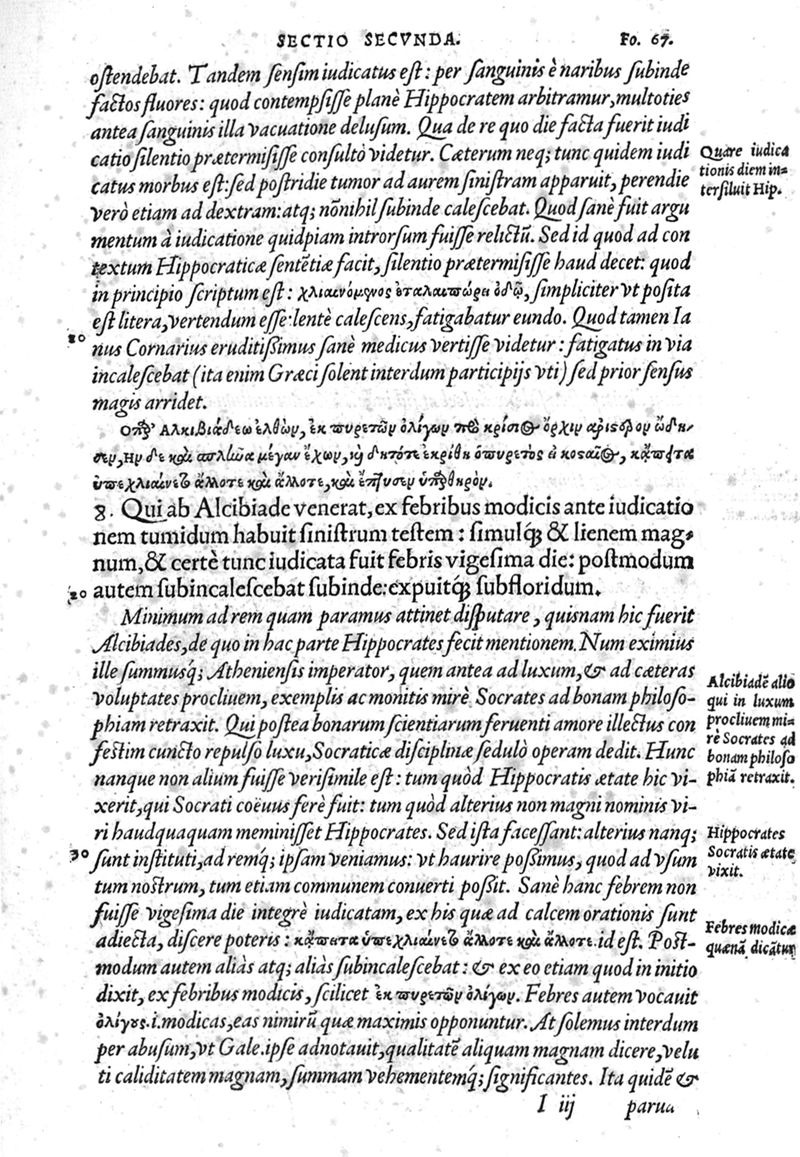 SECTIO SECVNDA. Fo. 67.
oſtendebat. Tandem ſenſim iudicatus eſt: per ſanguinis è naribus ſubinde
factos fluores: quod contempſiſſe planè Hippocratem arbitramur, multoties
antea ſanguinis illa vacuatione deluſum. Qua de re quo die facta fuerit iudi
catio ſilentio prætermiſiſſe conſultò videtur. Cæterum neq; tunc quidem iudi
catus morbus eſt: ſed poſtridie tumor ad aurem ſiniſtram apparuit, perendie
verò etiam ad dextram: atq; nõnihil ſubinde caleſcebat. Quod ſanè fuit argu
mentum à iudicatione quidpiam introrſum fuiſſe relictũ. Sed id quod ad con
textum Hippocraticæ ſentẽtiæ facit, ſilentio prætermiſiſſe haud decet: quod
in principio ſcriptum eſt: χλιαινόμϟνος ἐταλαιπώρει ὁδῷ, ſimpliciter vt poſita
eſt litera, vertendum eſſe: lentè caleſcens, fatigabatur eundo. Quod tamen Ia
nus Cornarius eruditiſſimus ſanè medicus vertiſſe videtur: fatigatus in via
incaleſcebat (ita enim Græci ſolent interdum participijs vti) ſed prior ſenſus
magis arridet.
Quare iudica
tionis diem in=
terſiluit Hip.
Αλκιβιάδεω ἐλθὼν, ἐκ πυρετῶν ὀλίγων κρίσιος ὄρχιν ἀριστερὸν ᾤδη-
σεν, Ην δὲ καὶ σπλῆνα μέγαν ἔχων, καὶ ἐκρίθη ὁ πυρετὸς
ὑπεχλιαίνετο ἄλλοτε καὶ ἄλλοτε, καὶ ἔπτυσεν
8. Qui ab Alcibiade venerat, ex febribus modicis ante iudicatio
nem tumidum habuit ſiniſtrum teſtem: ſimulq; & lienem mag-
num, & certè tunc iudicata fuit febris vigeſima die: poſtmodum
20 autem ſubincaleſcebat ſubinde: expuitq; ſubfloridum.
Minimum ad rem quam paramus attinet diſputare, quiſnam hic fuerit
Alcibiades, de quo in hac parte Hippocrates fecit mentionem. Num eximius
ille ſummusq́; Athenienſis imperator, quem antea ad luxum, & ad cæteras
voluptates procliuem, exemplis ac monitis mirè Socrates ad bonam philoſo-
phiam retraxit. Qui poſtea bonarum ſcientiarum feruenti amore illectus con
feſtim cuncto repulſo luxu, Socraticæ diſciplinæ ſedulò operam dedit. Hunc
nanque non alium fuiſſe veriſimile eſt: tum quòd Hippocratis ætate hic vi-
xerit, qui Socrati coëuus ferè fuit: tum quòd alterius non magni nominis vi-
ri haudquaquam meminiſſet Hippocrates. Sed iſta faceſſant: alterius nanq;
30 ſunt inſtituti, ad remq́; ipſam veniamus: vt haurire poſſimus, quod ad vſum
tum noſtrum, tum etiam communem conuerti poſſit. Sanè hanc febrem non
fuiſſe vigeſima die integrè iudicatam, ex his quæ ad calcem orationis ſunt
adiecta, diſcere poteris: κἄπειτα ὑπεχλιαίνετο ἄλλοτε καὶ ἄλλοτε. id eſt. Poſt-
modum autem aliàs atq; aliàs ſubincaleſcebat: & ex eo etiam quod in initio
dixit, ex febribus modicis, ſcilicet ἐκ πυρετῶν ὀλίγων. Febres autem vocauit
ὀλίγους .i. modicas, eas nimirũ quæ maximis opponuntur. At ſolemus interdum
per abuſum, vt Gale. ipſe adnotauit, qualitatẽ aliquam magnam dicere, velu
ti caliditatem magnam, ſummam vehementemq́; ſignificantes. Ita quidẽ &
Alcibiadẽ alio
qui in luxum
procliuem mi=
rè Socrates ad
bonam philoſo
phiã retraxit.
Hippocrates
Socratis ætate
vixit.
Febres modicæ
quænã dicãtur
I iij parua